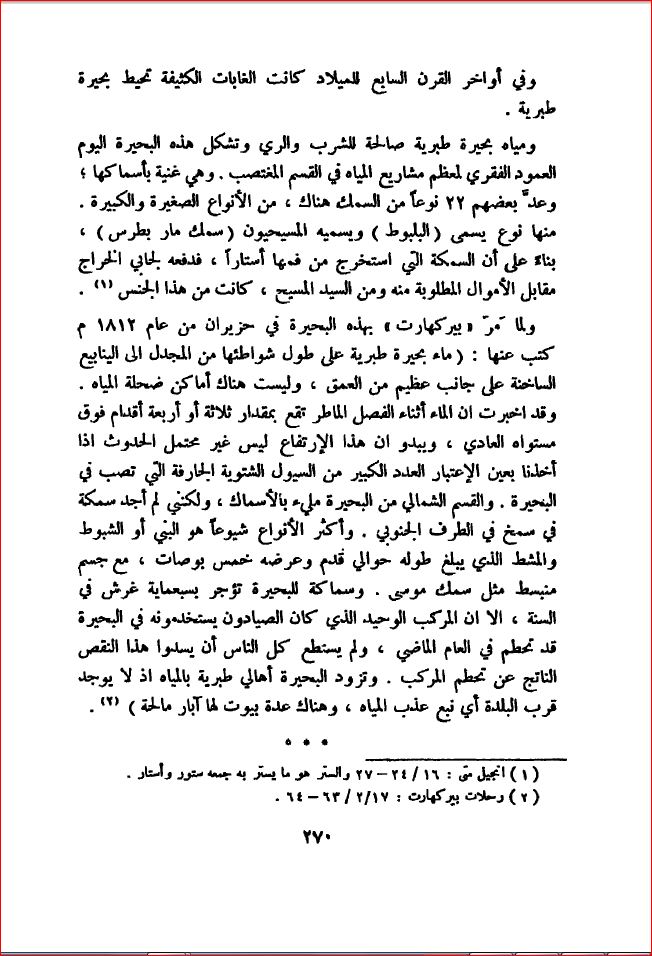 وفي أواخر القرن السابع للميلاد كانت الغابات الكثيفة تحيط بحيرة
طبرية .
ومياه بحيرة طبرية صالحة للشرب والري وتشكل هذه البحيرة اليوم
العمود الفقري لمعظم مشاريع المياه في القسم المغتصب . وهي غنية بأسماكها ؛
وعدَّ بعضهم ٢٢ نوعاً من السمك هناك ، من الأنواع الصغيرة والكبيرة .
منها نوع يسمى ( البلبوط ) ويسميه المسيحيون ( سمك مار بطرس ) ،
بناءً على أن السمكة التي استخرج من فمها أستاراً ، فدفعه لجابي الخراج
مقابل الأموال المطلوبة منه ومن السيد المسيح ، كانت من هذا الجنس (١) .
ولما مَرَّ « بيركهارت » بهذه البحيرة في حزيران من عام ١٨١٢ م
كتب عنها : ( ماء بحيرة طبرية على طول شواطئها من المجدل الى الينابيع
الساخنة على جانب عظيم من العمق ، وليست هناك أماكن ضحلة المياه .
وقد اخبرت ان الماء أثناء الفصل الماطر تقع بمقدار ثلاثة أو أربعة أقدام فوق
مستواه العادي ، ويبدو ان هذا الإرتفاع ليس غير محتمل الحدوث اذا
أخذنا بعين الإعتبار العدد الكبير من السيول الشتوية الجارفة التي تصب في
البحيرة . والقسم الشمالي من البحيرة مليء بالأسماك ، ولكنني لم أجد سمكة
في سمخ في الطرف الجنوبي . وأكثر الأنواع شيوعاً هو البني أو الشبوط
والمشط الذي يبلغ طوله حوالي قدم وعرضه خمس بوصات ، مع جسم
منبسط مثل سمك موسى . وسماكة للبحيرة تؤجر بسبعماية غرش في
السنة ، الا ان المركب الوحيد الذي كان الصيادون يستخدمونه في البحيرة
قد تحطم في العام الماضي ، ولم يستطع كل الناس أن يسدوا هذا النقص
الناتج عن تحطم المركب . وتزود البحيرة أهالي طبرية بالمياه اذ لا يوجد
قرب البلدة أي نبع عذب المياه ، وهناك عدة بيوت لها آبار مالحة ) (٢) .
* * *
( ١ ) انجيل متى : ١٦ / ٢٤ – ٢٧ والستر هو ما يستر به جمعه ستور وأستار .
( ٢ ) رحلات بيركهارت : ٢/١٧ / ٦٣ – ٦٤ .
٢٧٠